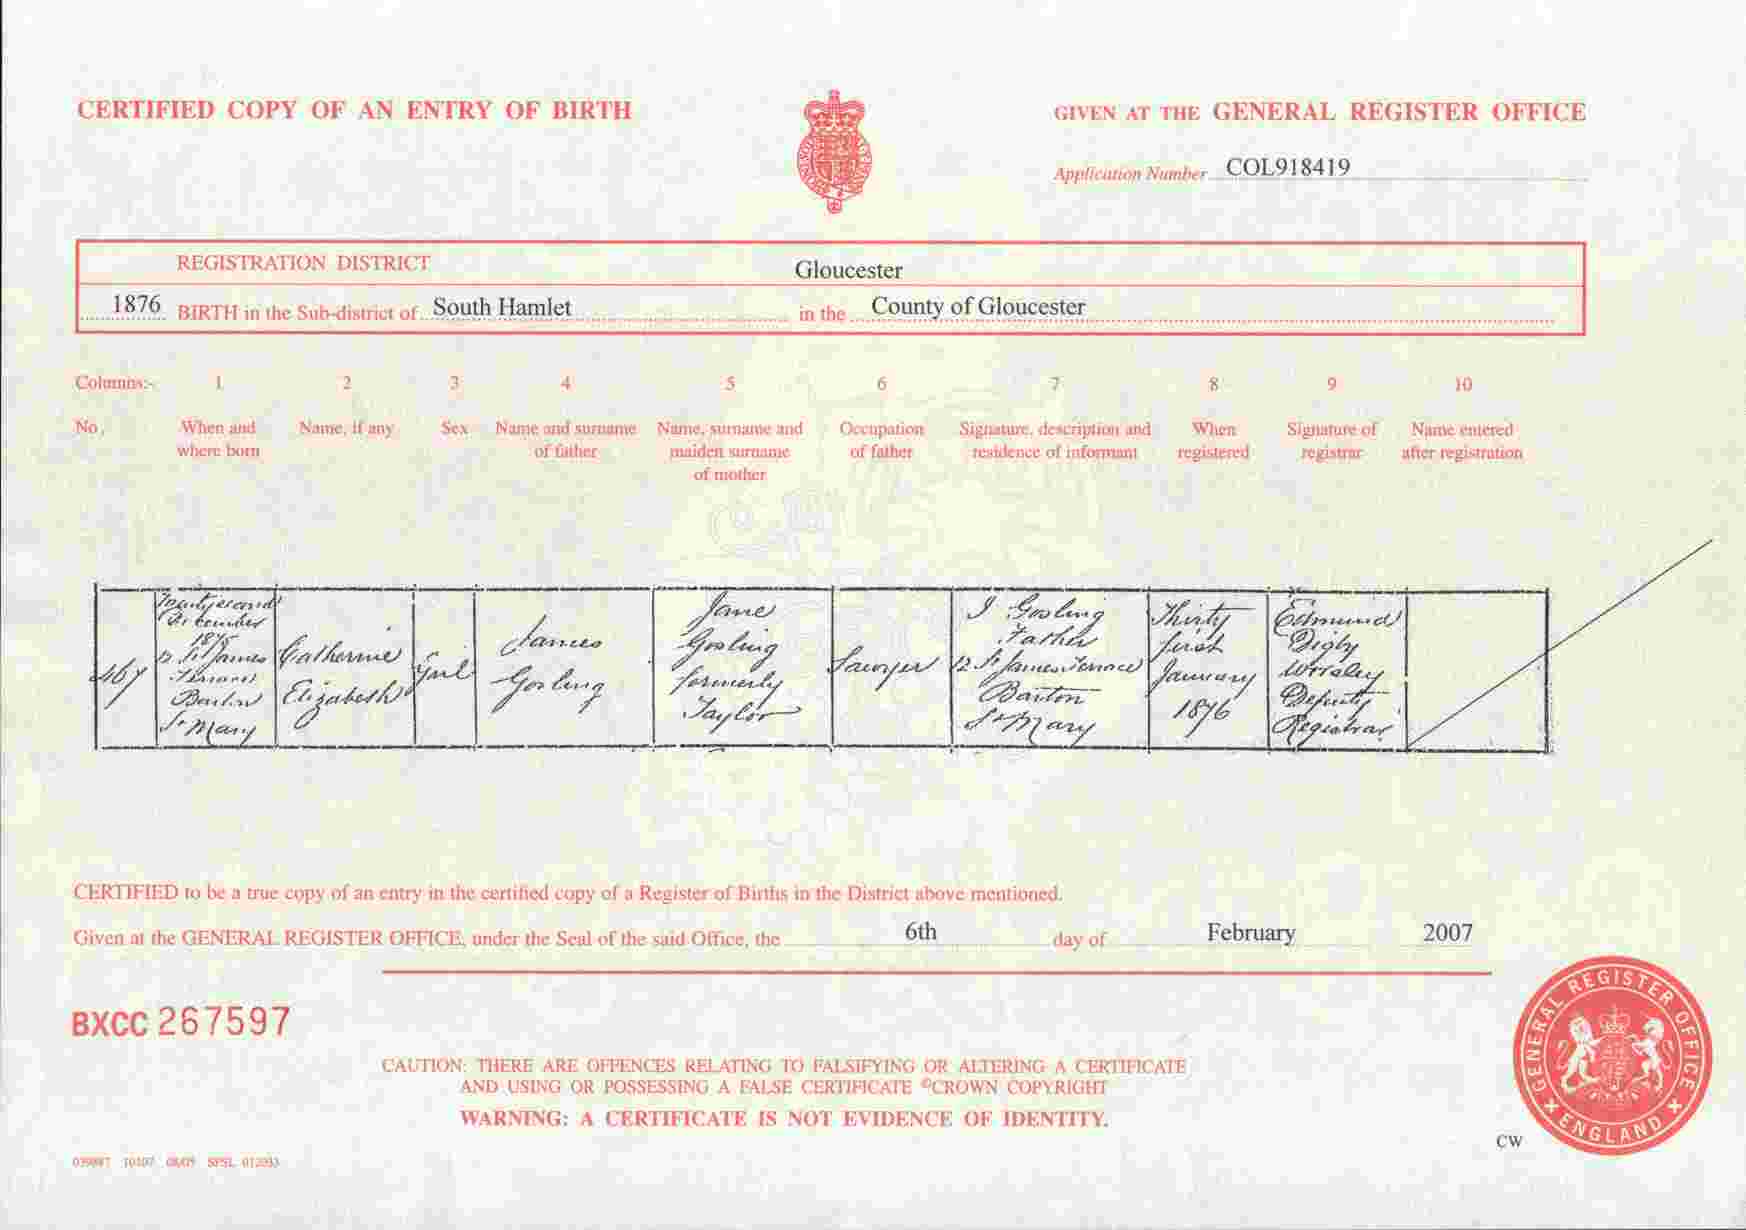 CERTIFIED COPY OF AN ENTRY OF BIRTH
GIVEN AT THE GENERAL REGISTER OFFICE
Application Number COL918419
REGISTRATION DISTRICT Gloucester
1876 BIRTH in the Sub-district of South Hamlet in the County of Gloucester
Columns:- 1 2 3 4 5 6 7 8 9 10
No. When and where born
Name, if any
Sex
Name and surname of father
Name, surname and maiden surname of mother
Occupation of father
Signature, description and residence of informant
When registered
Signature of registrar
Name entered after registration
467
Twenty second
December
1875
12 St James
Terrace
Barton
St Mary
Catherine
Elizabeth
Girl
James
Gosling
Jane
Gosling
formerly
Taylor
Sawyer
J Gosling
Father
12 St James Terrace
Barton
St Mary
Thirty
first
January
1876
Edmund
Digby
Worsley
Deputy
Registrar
CERTIFIED to be a true copy of an entry in the certified copy of a Register of Births in the District above mentioned.
Given at the GENERAL REGISTER OFFICE, under the Seal of the said Office, the 6th day of February 2007
BXCC 267597
CAUTION: THERE ARE OFFENCES RELATING TO FALSIFYING OR ALTERING A CERTIFICATE
AND USING OR POSSESSING A FALSE CERTIFICATE ©CROWN COPYRIGHT
WARNING: A CERTIFICATE IS NOT EVIDENCE OF IDENTITY.
GENERAL REGISTER OFFICE
ENGLAND
CW
SPSL